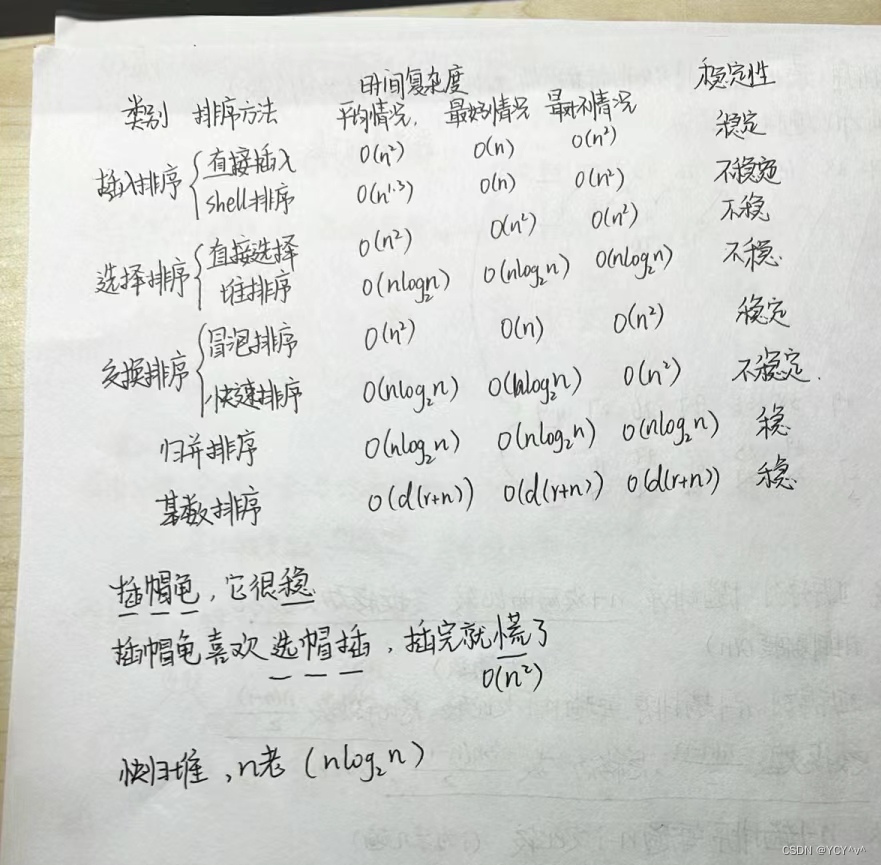 时间复杂度 稳定性
类别 排序方法 平均情况. 最好情况 最坏情况
插入排序 { 直接插入 O(n²) O(n) O(n²) 稳定
shell排序 O(n^1.3) O(n) O(n²) 不稳定
选择排序 { 直接选择 O(n²) O(n²) O(n²) 不稳
堆排序 O(nlog₂n) O(nlog₂n) O(nlog₂n) 不稳.
交换排序 { 冒泡排序 O(n²) O(n) O(n²) 稳定
快速排序 O(nlog₂n) O(nlog₂n) O(n²) 不稳定.
归并排序 O(nlog₂n) O(nlog₂n) O(nlog₂n) 稳
基数排序 O(d(r+n)) O(d(r+n)) O(d(r+n)) 稳
插帽龟,它很稳
插帽龟喜欢选帽插,插完就慌了
O(n²)
快归堆,n老(nlog₂n)
CSDN @YCY^v^